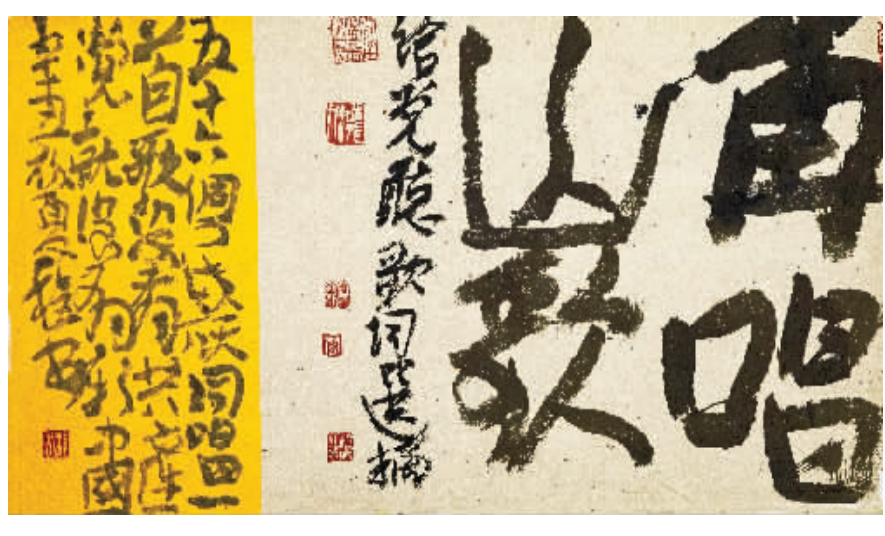 再唱
山歌
给党聽歌词選摘
五十六個民族同唱一
首歌没有共産
党就没有新中國
辛丑